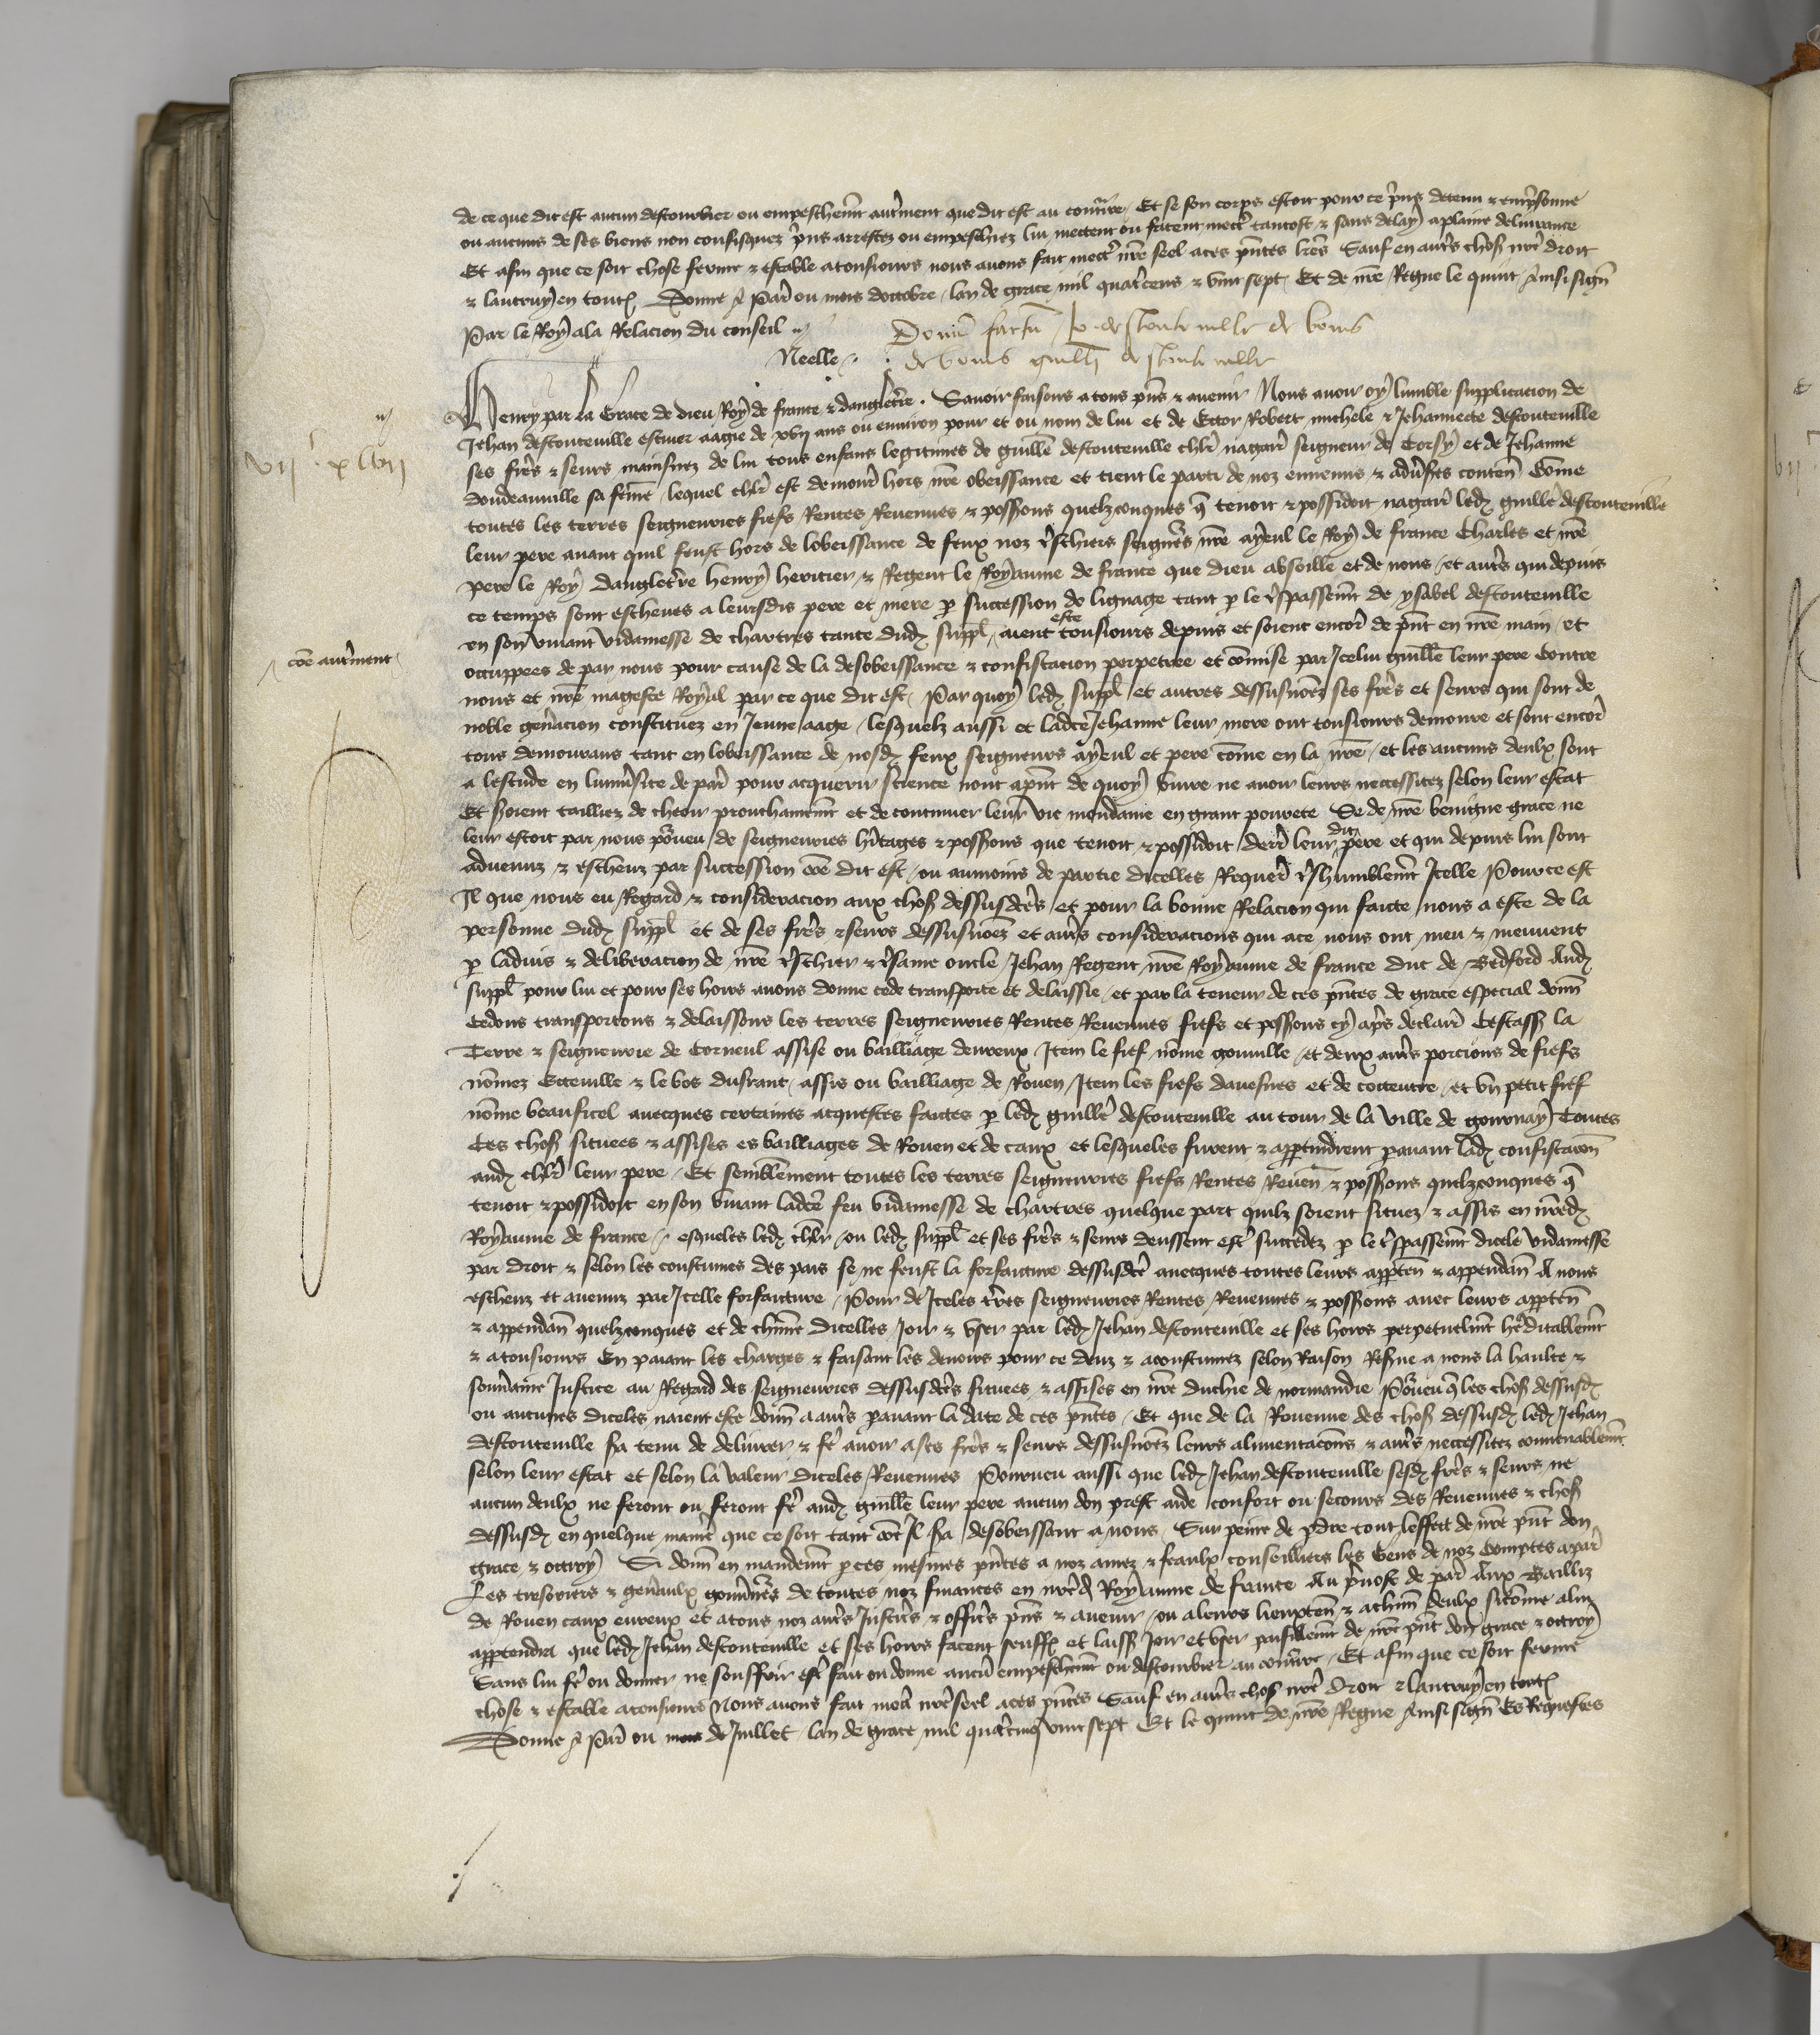 de ce que dit est aucun destourbier ou empeschemt autrement que dit est au contraire Et se son corps estoit pour ce pris detenu & emprisonne
ou aucuns de ses biens non confisquez pris arrestez ou empeschiez lui mectent ou facent mectre tantost & sans delay a plaine delivrance
Et afin que ce soit chose ferme & estable a tousiours nous avons fait mectre nre seel a ces pntes lres Sauf en autres choses nre droit
& lautruy en toutes Donne a Paris ou mois doctobre lan de grace mil quatrecens & vint sept Et de nre Regne le quint Ainsi signe
Par le Roy a la Relacion du conseil
Neelle
Donum factum Jo. destouteville de bonis
de bonis guillmi destouteville
vijc xlvij
Henry par la Grace de dieu Roy de france & dangleterre. Savoir faisons a tous pns & avenir Nous avoir oy lumble supplicacion de
Jehan destouteville escuier aagie de xvij ans ou environ pour et ou nom de lui et de Ector Robert michele & Jehannecte destouteville
ses freres & seurs mainsnez de lui tous enfans legitimes de guillme destouteville chlr nagaires seigneur de Torsy et de Jehanne
doudeauville sa femme lequel chlr est demoure hors nre obeissance et tient le parti de noz ennemis & adversres conten Comme
toutes les terres seigneuries fiefs Rentes Revenues & possions quelzconques q tenoit & possidoit nagaires ledz guille destouteville
leur pere avant quil feust hors de lobeissance de feux noz treschiers seigneurs nre ayeul le Roy de france Charles et nre
pere le Roy dangleterre henry heritier & Regent le Royaume de france que dieu absoille et de nous et autres qui depuis
ce temps sont escheues a leursdis pere et mere p succession de lignage tant p le trespassemt de ysabel destouteville
en son vivant vidamesse de chartres tante dudz suppl aient este tousiours depuis et soient encores de pnt en nre main et
occuppees de par nous pour cause de la desobeissance & confiscacion perpetree et commise par Icelui guille leur pere Contre
come autrement
nous et nre mageste Royal par ce que dit est Par quoy ledz suppl et autres dessusnomez ses freres et seurs qui sont de
noble generacion constituez en Jeune aage lesquelz aussi et ladicte Jehanne leur mere ont tousiours demoure et sont encores
tous demourans tant en lobeissance de nosdz feux seigneurs ayeul et pere come en la nre et les aucuns deulx sont
a lestude en luniversite de paris pour acquerir science nont apnt de quoy vivre ne avoir leurs necessitez selon leur estat
Et soient tailliez de cheoir prouchainemt et de continuer leur vie mondaine en grant povrete Se de nre benigne grace ne
leur estoit par nous pourveu de seigneuries heritages & possions que tenoit & possidoit leur dit pere et qui depuis lui sont
advenuz & escheuz par succession come dit est ou aumoins de partie dicelles Requerant treshumblemt Icelle Pource est
Il que nous eu Regard & consideracion aux choses dessusdictes et pour la bonne Relacion qui faicte nous a este de la
personne dudz suppl et de ses freres & seurs dessusnomez et autres consideracions qui a ce nous ont meu & meuvent
p ladvis & deliberacion de nre treschier & tresame oncle Jehan Regent nre Royaume de france duc de Bedford Audz
suppl pour lui et pour ses hoirs avons donne cede transporte et delaissie et par la teneur de ces pntes de grace especial donn
Cedons transportons & delaissons les terres seigneuries Rentes Revenues fiefs et possions cy apres declairez Cestass la
Terre & seigneurie de Torneul assise ou bailliage devreux Item le fief nome gonville et deux autres porcions de fiefs
nomez Ecteville & le bos dusrant assis ou bailliage de Rouen Item les fiefs davesnes et de cottentre et un petit fief
nome beauficel avecques certaines acquestes faictes p ledz guille destouteville au tour de la ville de gournay Toutes
Ces choses situees & assises es bailliages de Rouen et de caux et lesqueles furent & apptindrent pavant ladz confiscacon
audz chlr leur pere Et semblement toutes les terres seigneuries fiefs Rentes Reven & possions quelzconques q
tenoit & possidoit en son vivant ladicte feu vidamesse de chartres quelque part quilz soient situez & assis en nredz
Royaume de france esqueles ledz chlr ou ledz suppl et ses freres & seurs deussent estre succedez p le trespassemt dicele vidamesse
par droit & selon les coustumes des pais se ne feust la forfaicture dessusdicte avecques toutes leurs apptten & appendan A nous
escheuz et avenuz par Icelle forfaicture Pour de Iceles terres seigneuries Rentes Revenues & possions avec leurs apptten
& appendan quelzconques et de chune dicelles Joir & user par ledz Jehan destouteville et ses hoirs perpetuelmt hereditablemt
& a tousiours En paiant les charges & faisant les devoirs pour ce deuz & acoustumez selon Raison Reserve a nous la haulte &
souveraine Justice au Regard des seigneuries dessusdictes situees & assises en nre duchie de normandie Pourveu q les choses dessusdz
ou aucunes diceles naient este donn a autres pavant la date de ces pntes Et que de la Revenue des choses dessusdz ledz Jehan
destouteville sera tenu de delivrer & fere avoir a ses freres & seurs dessusnomez leurs alimentacions & autres necessitez convenablemt
selon leur estat et selon la valeur diceles Revenues Pourveu aussi que ledz Jehan destouteville sesdz freres & seurs ne
aucun deulx ne feront ou feront fere audz guille leur pere aucun don prest aide confort ou secours des Revenues & choses
dessusdz en quelque maniere que ce soit tant come Il sera desobeissant a nous Sur peine de perdre tout leffect de nre pnt don
grace & octroy Si donn en mandemt p ces mesmes pntes a noz amez & feaulx conseilliers les Gens de noz Comptes a paris
Les tresoriers & generaulx gouverneurs de toutes noz finances en nredz Royaume de france Au prevost de paris Aux Bailliz
de Rouen caux evreux et a tous noz autres Justiciers & officiers pns & avenir ou a leurs lieuxten & a chun deulx sicome a lui
apptendra que ledz Jehan destouteville et ses hoirs facent seuffrent et laissent Joir et user paisiblemt de nre pnt don grace & octroy
Sans lui fere ou donner ne souffrir estre fait ou donne aucun empeschemt ou destourbier au contraire Et afin que ce soit ferme
chose & estable a tousiours Nous avons fait mectre nre seel a ces pntes Sauf en autres choses nre droit & lautruy en toutes
Donne a Paris ou mois de Juillet lan de grace mil quatrecens vint sept Et le quint de nre Regne Ainsi signe Es Requestes